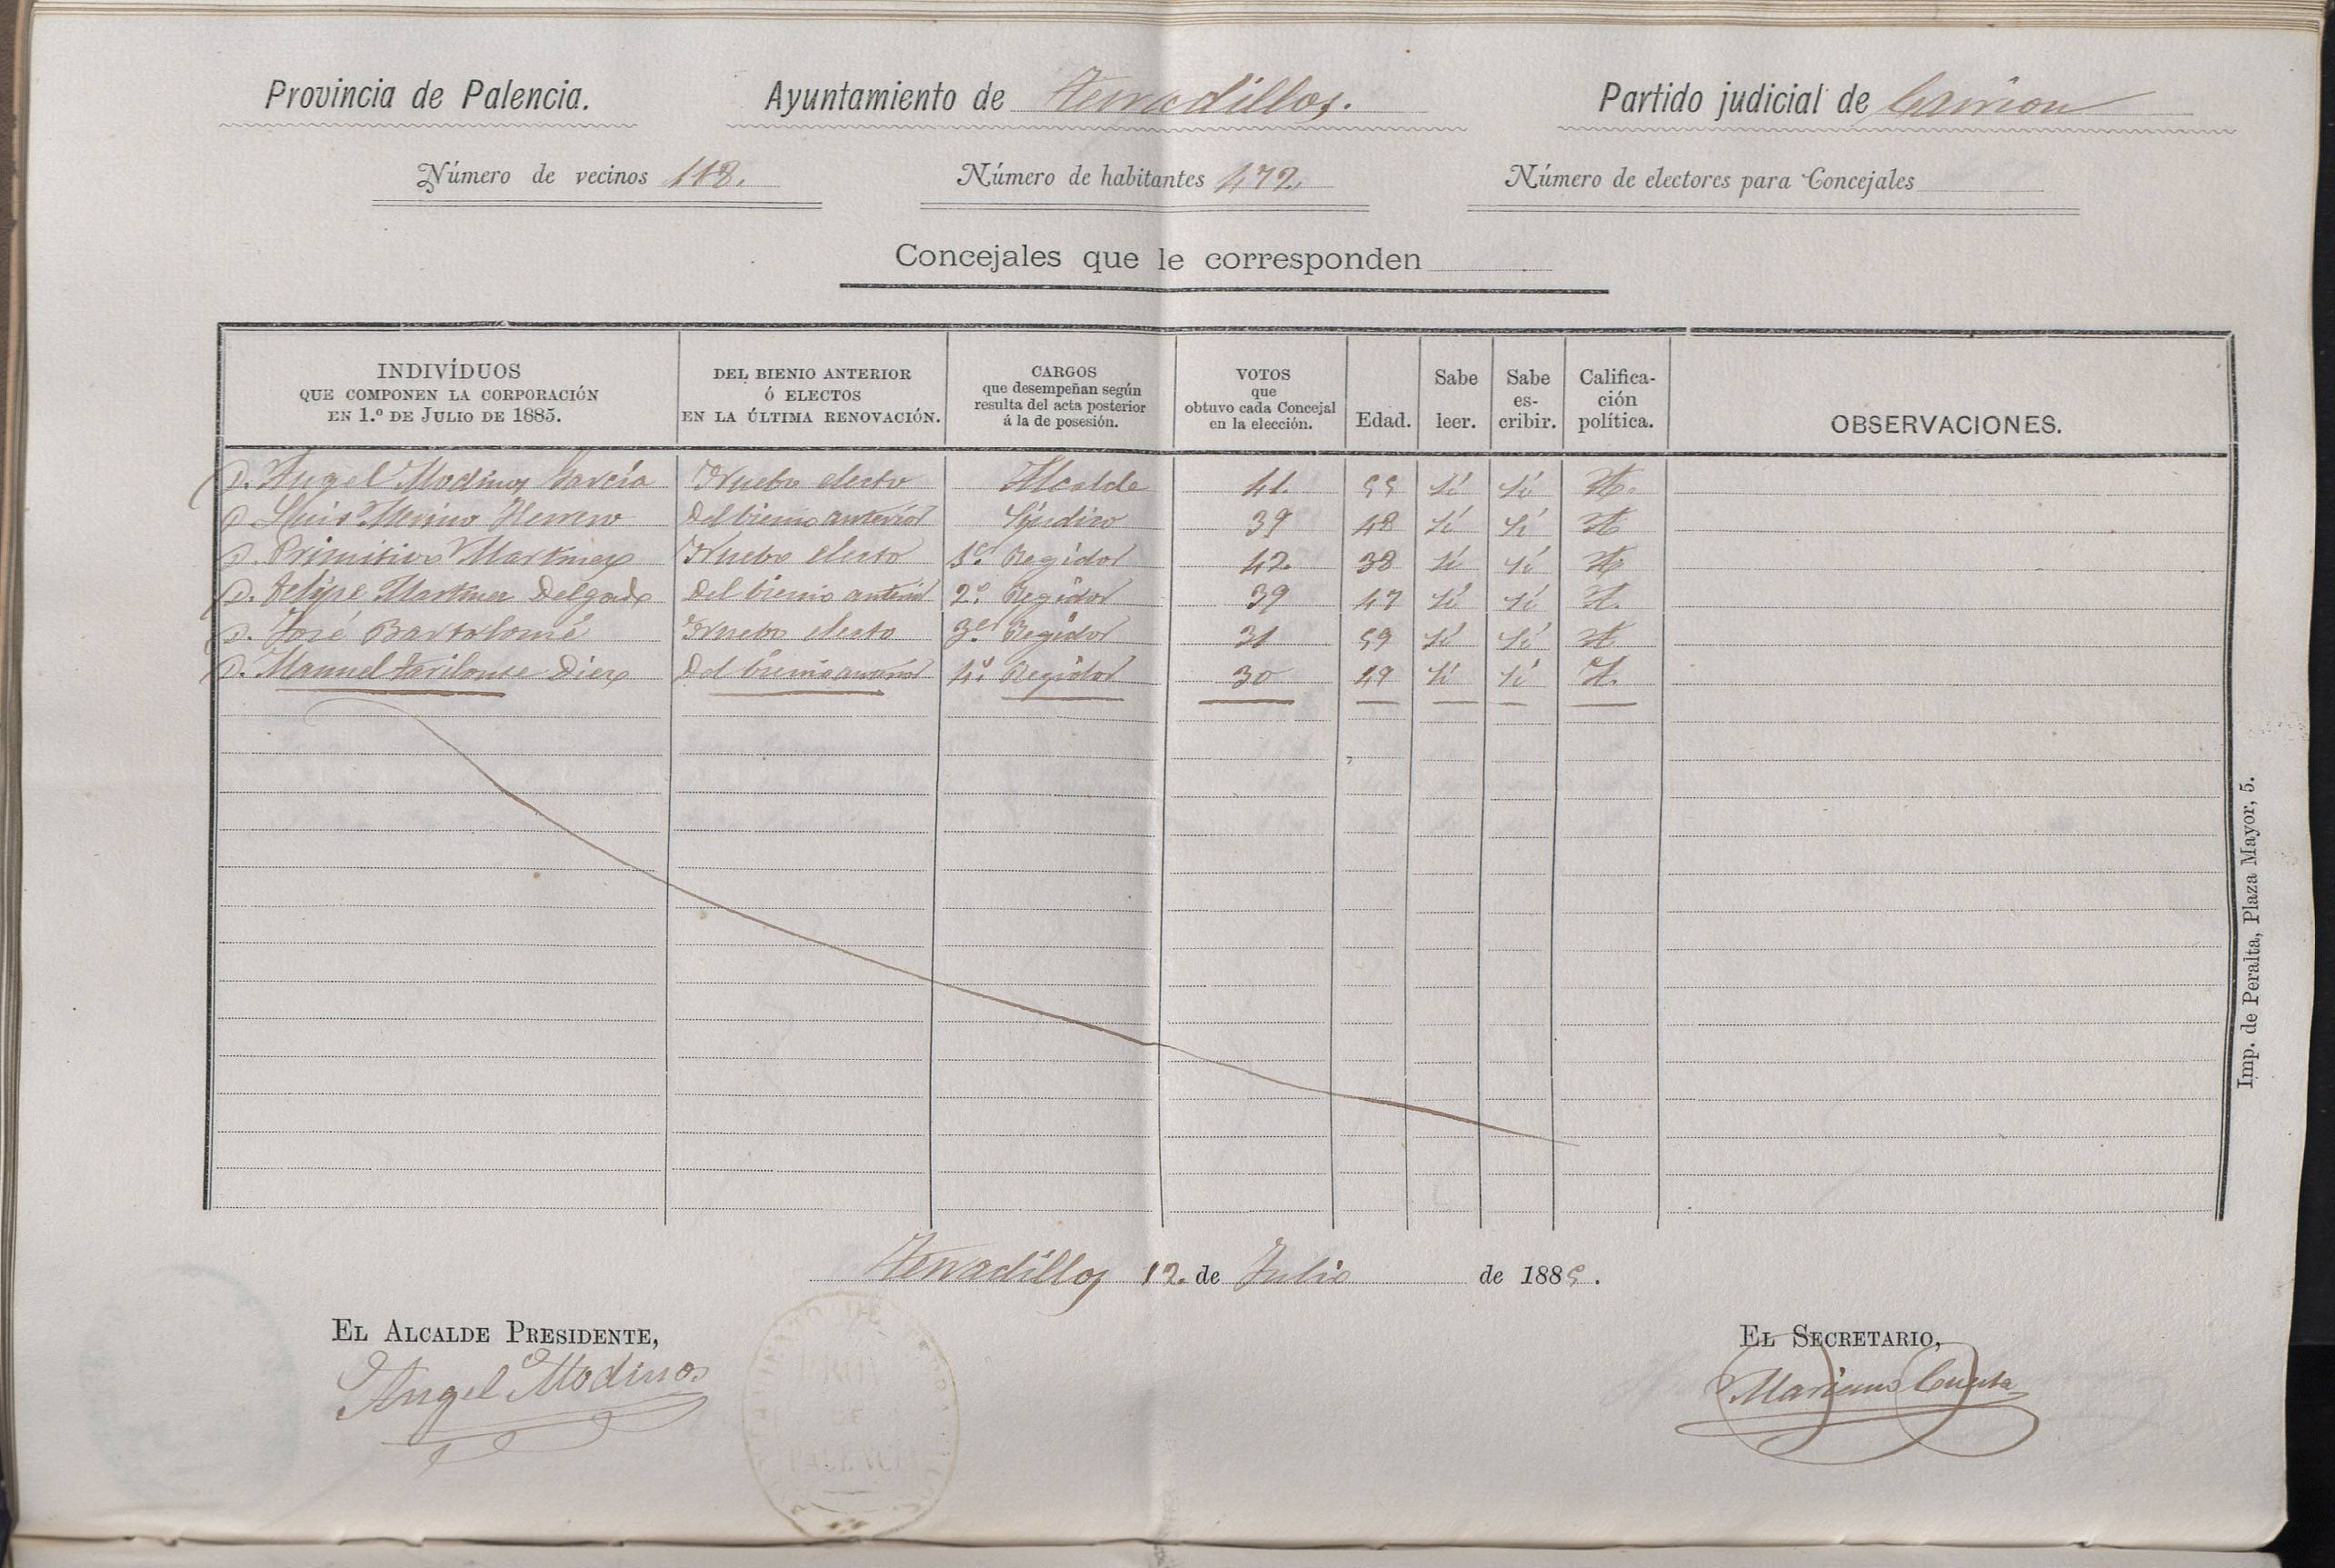 Provincia de Palencia. Ayuntamiento de Terradillos. Partido judicial de Carrion
Número de vecinos 118. Número de habitantes 472. Número de electores para Concejales
Concejales que le corresponden
INDIVÍDUOS QUE COMPONEN LA CORPORACIÓN EN 1.º DE JULIO DE 1885. DEL BIENIO ANTERIOR Ó ELECTOS EN LA ÚLTIMA RENOVACIÓN. CARGOS que desempeñan según resulta del acta posterior á la de posesión. VOTOS que obtuvo cada Concejal en la elección. Edad. Sabe leer. Sabe es-cribir. Califica-ción política. OBSERVACIONES.
D. Angel Modinos García Nuebo electo Alcalde 41. 55 Sí Sí H.
D. Luis Merino Herrero Del bienio anterior Síndico 39 48 Sí Sí H
D. Primitivo Martinez Nuebo electo 1.er Regidor 42. 38 Sí Sí H
D. Felipe Martinez Delgado Del bienio anterior 2.º Regidor 39 47 Sí Sí H.
D. José Bartolomé Nuebo electo 3.er Regidor 31 59 Sí Sí H
D. Manuel Diez Del bienio anterior 4.º Regidor 30 49 Sí Sí H.
Terradillos 12. de Julio de 1885.
EL ALCALDE PRESIDENTE, EL SECRETARIO,
Angel Modinos Mariano Cuesta
PALENCIA
Imp. de Peralta, Plaza Mayor, 5.